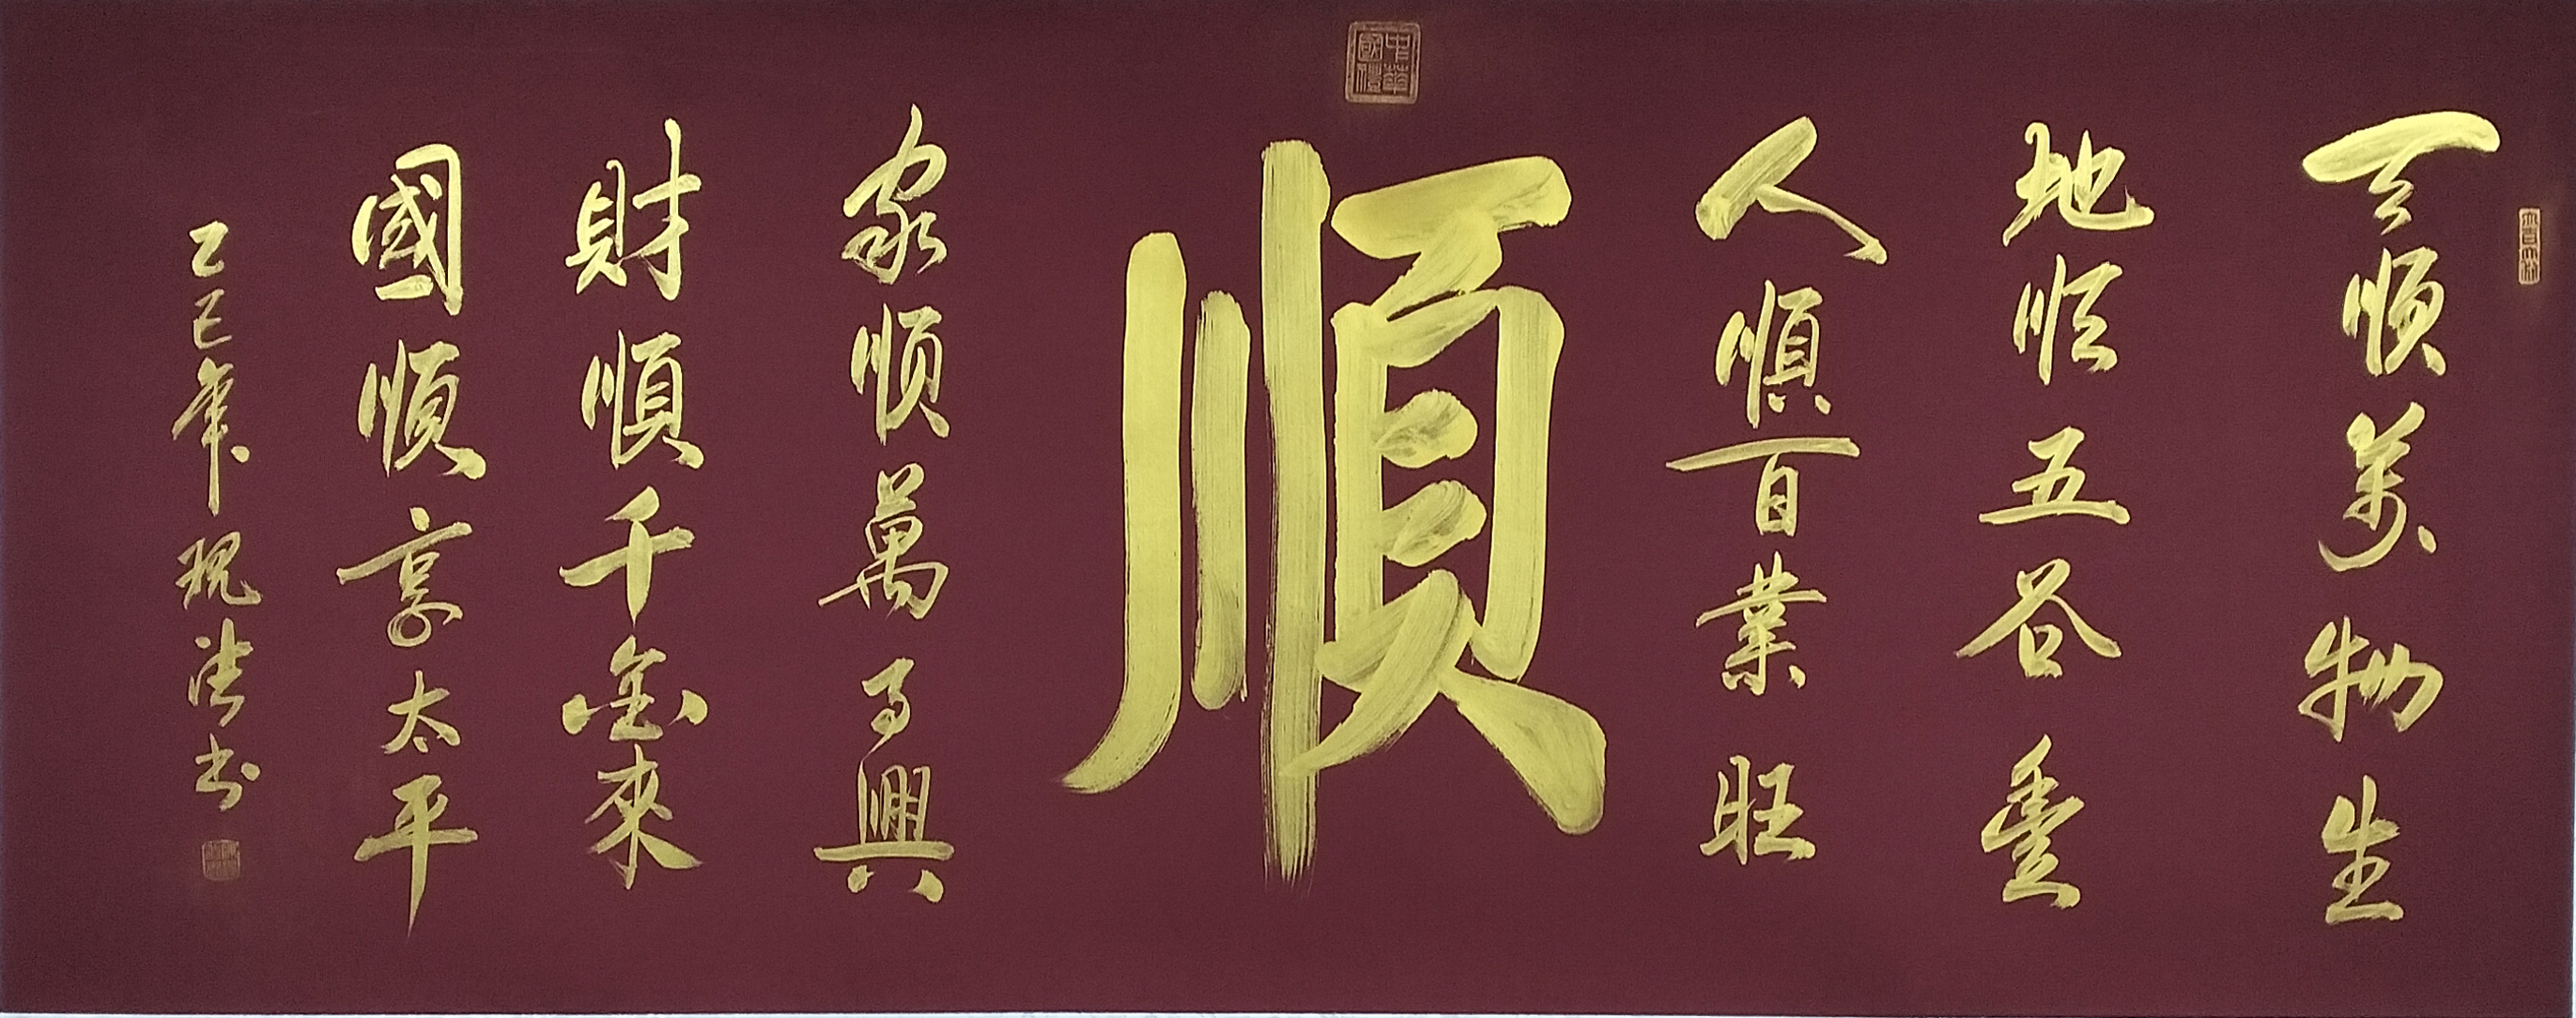 天順萬物生
地順五谷豐
人順百業旺
中華國禮
順
家順萬事興
財順千金來
國順享太平
乙巳年 观法书